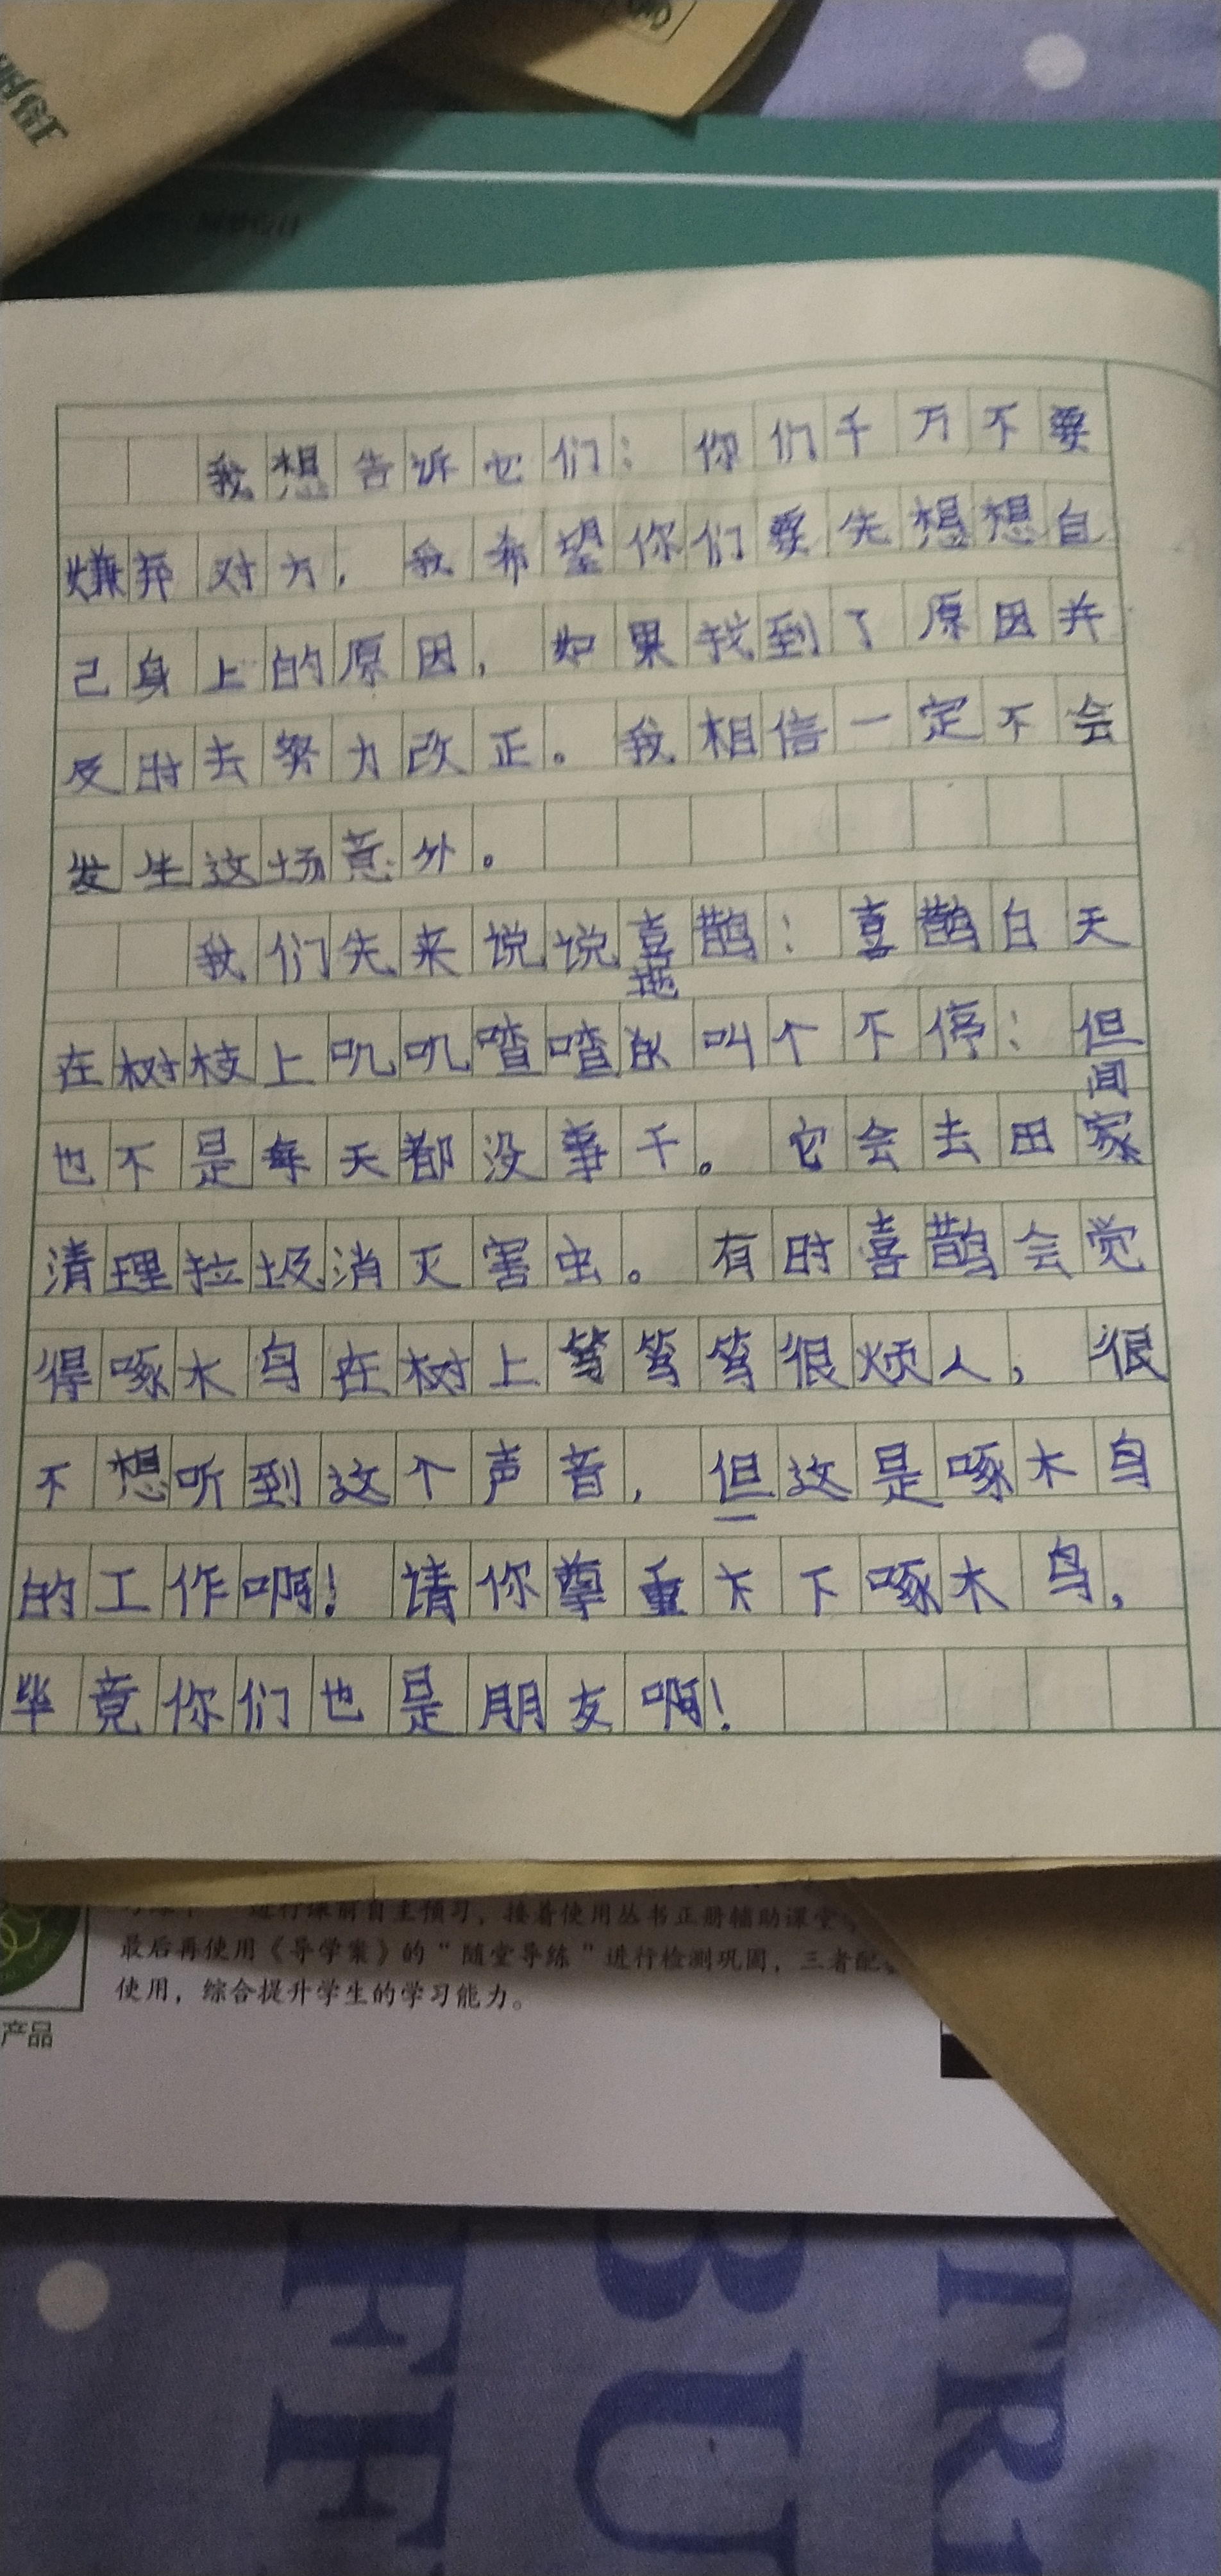 我想告诉它们：你们千万不要
嫌弃对方，我希望你们要先想想自
己身上的原因，如果找到了原因并
及时去努力改正。我相信一定不会
发生这场意外。
我们先来说说喜鹊：喜鹊白天
在树枝上叽叽喳喳地叫个不停：但
也不是每天都没事干。它会去田间
清理垃圾消灭害虫。有时喜鹊会觉
得啄木鸟在树上笃笃笃很烦人，很
不想听到这个声音，但这是啄木鸟
的工作啊！请你尊重一下啄木鸟，
毕竟你们也是朋友啊！
进行课前自主预习，接着使用丛书正册辅助课堂
最后再使用《导学案》的“随堂导练”进行检测巩固，三者配
使用，综合提升学生的学习能力。
产品
FF
BU
TR